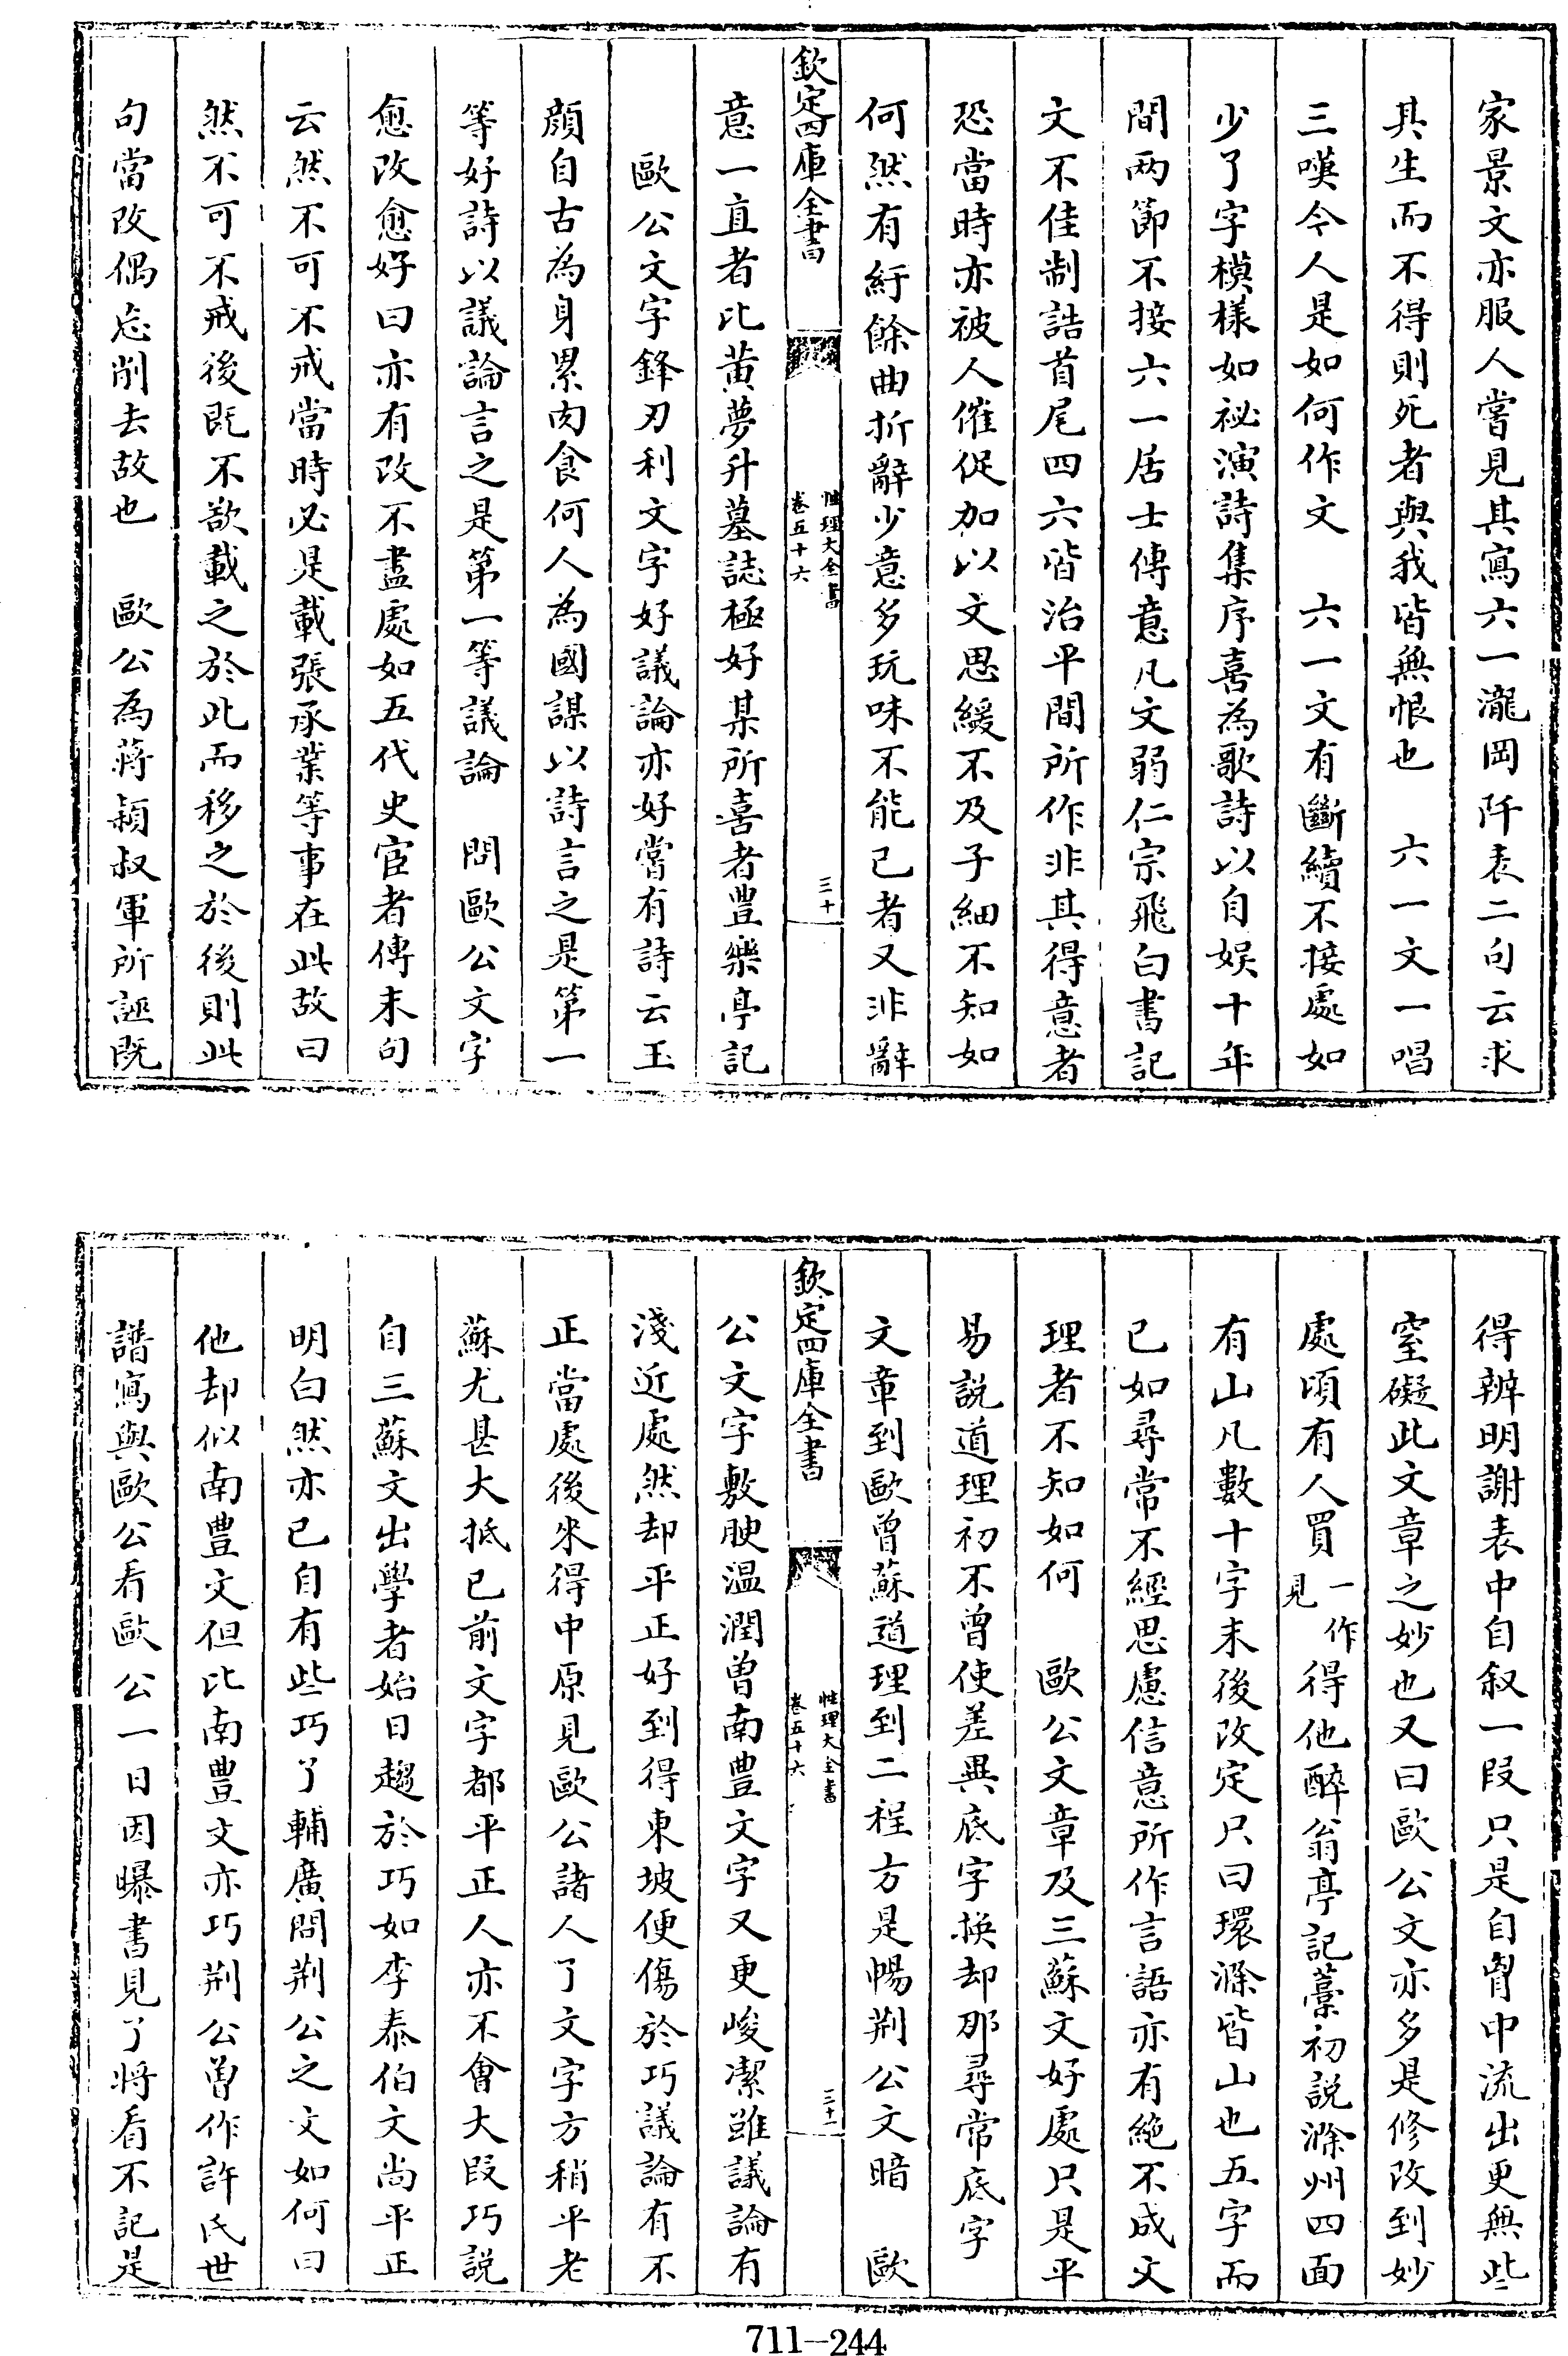 家景文亦服人嘗見其寫六一瀧岡阡表二句云求
其生而不得則死者與我皆無恨也　六一文一唱
三嘆今人是如何作文　六一文有斷續不接處如
少了字模樣如祕演詩集序喜為歌詩以自娛十年
間两節不接六一居士傳意凡文弱仁宗飛白書記
文不佳制誥首尾四六皆治平間所作非其得意者
恐當時亦被人催促加以文思緩不及子細不知如
何然有紆餘曲折辭少意多玩味不能已者又非辭
欽定四庫全書
性理大全書
卷五十六
三十
意一直者比黄夢升墓誌極好某所喜者豐樂亭記
歐公文字鋒刃利文字好議論亦好嘗有詩云玉
顔自古為身累肉食何人為國謀以詩言之是第一
等好詩以議論言之是第一等議論　問歐公文字
愈改愈好曰亦有改不盡處如五代史宦者傳末句
云然不可不戒當時必是載張承業等事在此故曰
然不可不戒後既不欲載之於此而移之於後則此
句當改偶忘削去故也　歐公為蔣穎叔軍所誣既
得辨明謝表中自叙一段只是自胷中流出更無些
窒礙此文章之妙也又曰歐公文亦多是修改到妙
處頃有人買一作見得他醉翁亭記藁初説滁州四面
有山凡數十字末後改定只曰環滁皆山也五字而
已如尋常不經思慮信意所作言語亦有絶不成文
理者不知如何　歐公文章及三蘇文好處只是平
易説道理初不曾使差異底字換却那尋常底字
文章到歐曾蘇道理到二程方是暢荆公文暗　歐
欽定四庫全書
性理大全書
卷五十六
三十一
公文字敷腴温潤曾南豐文字又更峻潔雖議論有
淺近處然却平正好到得東坡便傷於巧議論有不
正當處後來得中原見歐公諸人了文字方稍平老
蘇尤甚大抵已前文字都平正人亦不會大段巧説
自三蘇文出學者始日趨於巧如李泰伯文尚平正
明白然亦已自有些巧了輔廣問荆公之文如何曰
他却似南豐文但比南豐文亦巧荆公曾作許氏世
譜寫與歐公看歐公一日因曝書見了將看不記是
711—244